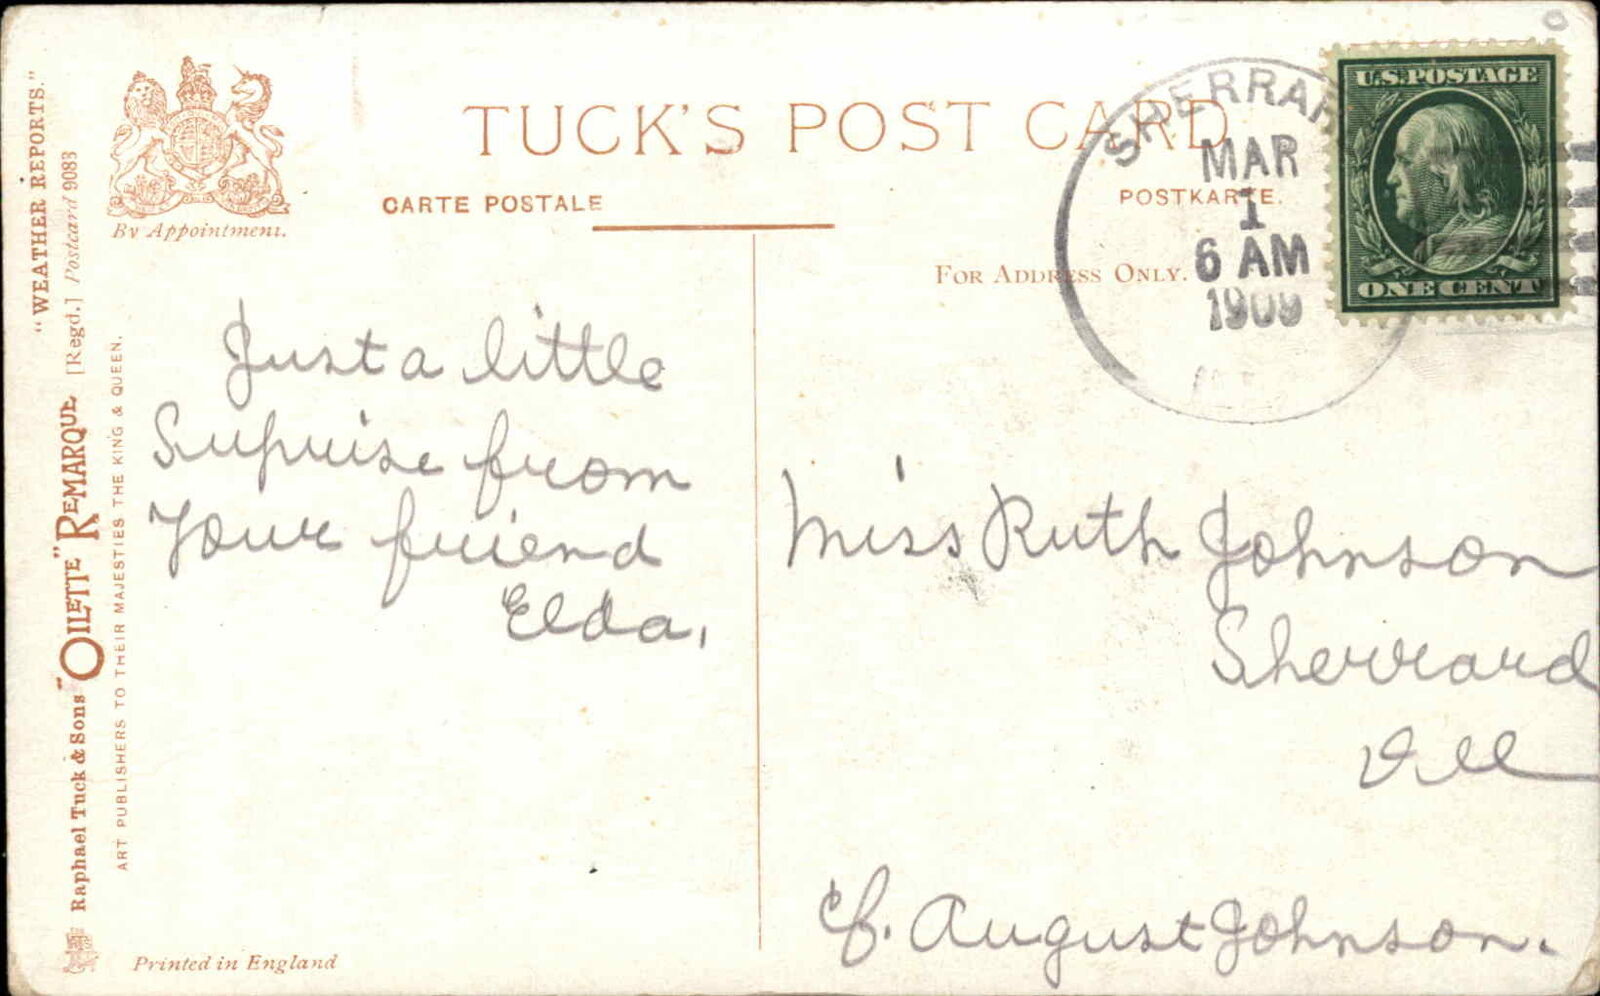 "WEATHER REPORTS."
Raphael Tuck & Sons "OILETTE" REMARQUE [Regd.] Postcard 9083
ART PUBLISHERS TO THEIR MAJESTIES THE KING & QUEEN.
By Appointment.
TUCK'S POST CARD
CARTE POSTALE
POSTKARTE.
FOR ADDRESS ONLY.
SHERRAR
MAR
1
6 AM
1909
U.S. POSTAGE
ONE CENT
Just a little
Surprise from
Your friend
Elda.
Miss Ruth Johnson
Sherrard
Ill
August Johnson.
Printed in England